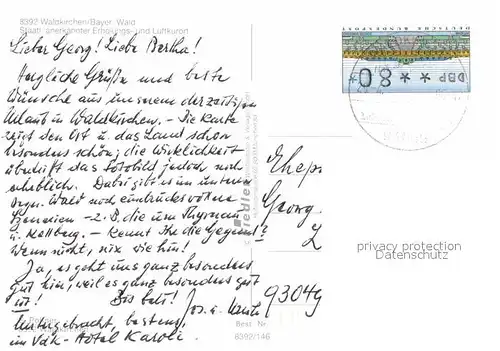 8392 Waldkirchen/Bayer. Wald
Staatl. anerkannter Erholungs- und Luftkurort
Lieber Georg! Liebe Bertha!
Herzliche Grüße und beste
Wünsche aus unserem derzeitigen
Urlaub in Waldkirchen. – Die Karte
zeigt den Ort u. das Land schon
besonders schön; die Wirklichkeit
übertrifft das Fotobild jedoch noch
erheblich. Dabei gibt es im unteren
Bayr. Wald noch eindrucksvollere
Szenerien – z.B. die um Thyrnau
u. Kellberg. – Kennt Ihr die Gegend?
Wenn nicht, nix wie hin!
Ja, es geht uns ganz besonders
gut hier, weil es ganz besonders gut
ist! Bis bald! Jos. u.
Untergebracht, bestens,
im Vdk-Hotel Karoli.
DEUTSCHE BUNDESPOST
DBP ** 80
Ehep.
Georg
Z
9304g
privacy protection
Datenschutz
Best. Nr.
8392/146